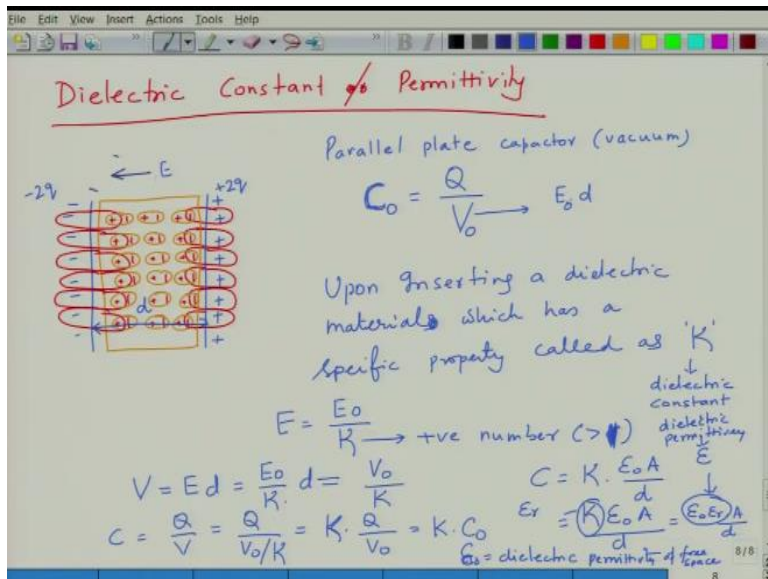 File Edit View Insert Actions Tools Help
Dielectric Constant % Permittivity
← E
-2q +2q
d
Parallel plate capactor (vacuum)
C₀ = Q/V₀ → E₀d
Upon Inserting a dielectric
materials which has a
specific property called as 'K'
↓
dielectric
constant
dielectric
permittivity
ε
E = E₀/K → +ve number (>1)
V = Ed = E₀/K. d = V₀/K
C = K. ε₀A/d
C = Q/V = Q/V₀/K = K. Q/V₀ = K. C₀
εr = Kε₀A/d = ε₀εrA/d
ε₀ = dielectric permittivity of free space
8/8
8